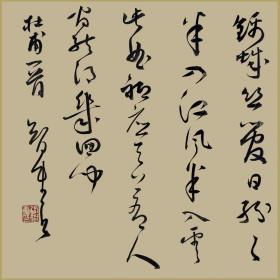 錦城丝管日纷々
半入江风半入雲
此曲祗应天上有人
间能得幾回闻
杜甫一首